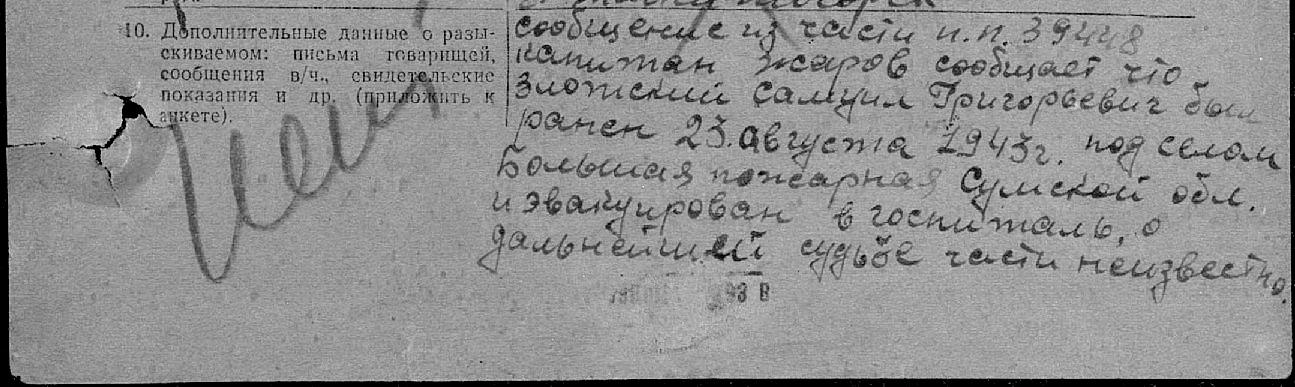 10. Дополнительные данные о разы-
скиваемом: письма товарищей,
сообщения в/ч., свидетельские
показания и др. (приложить к
анкете).
сообщение из части п.п. 39448
капитан Жаров сообщает что
Зложский Самуил Григорьевич был
ранен 23. августа 1943г. под селом
Большая пожарная Сумской обл.
и эвакуирован в госпиталь, о
дальнейшей судьбе части неизвестно.